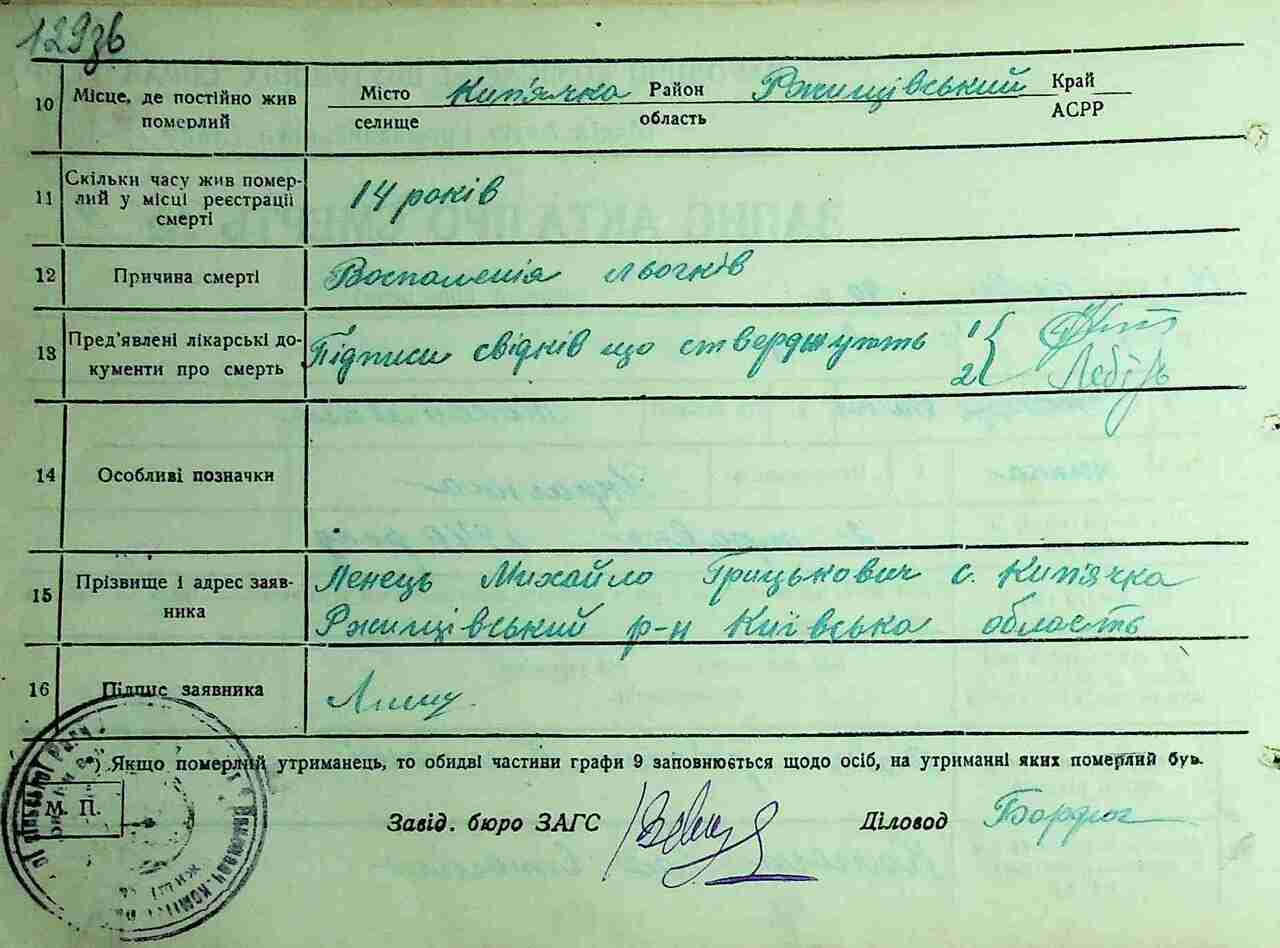 129зв
10 Місце, де постійно жив Місто Кип'ячка Район Ржищівський Край
померлий селище область АСРР
11 Скільки часу жив помер-
лий у місці реєстрації 14 років
смерті
12 Причина смерті Воспаленія льогків
13 Пред'явлені лікарські до- Підписи свідків що стверджують 1
кументи про смерть 2 Лебідь
14 Особливі позначки
15 Прізвище і адрес заяв- Ленець Михайло Грицькович с. Кип'ячка
ника Ржищівський р-н Київська область
16 Підпис заявника
*) Якщо померлий утриманець, то обидві частини графи 9 заповнюється щодо осіб, на утриманні яких померлий був.
М. П.
Завід. бюро ЗАГС Діловод